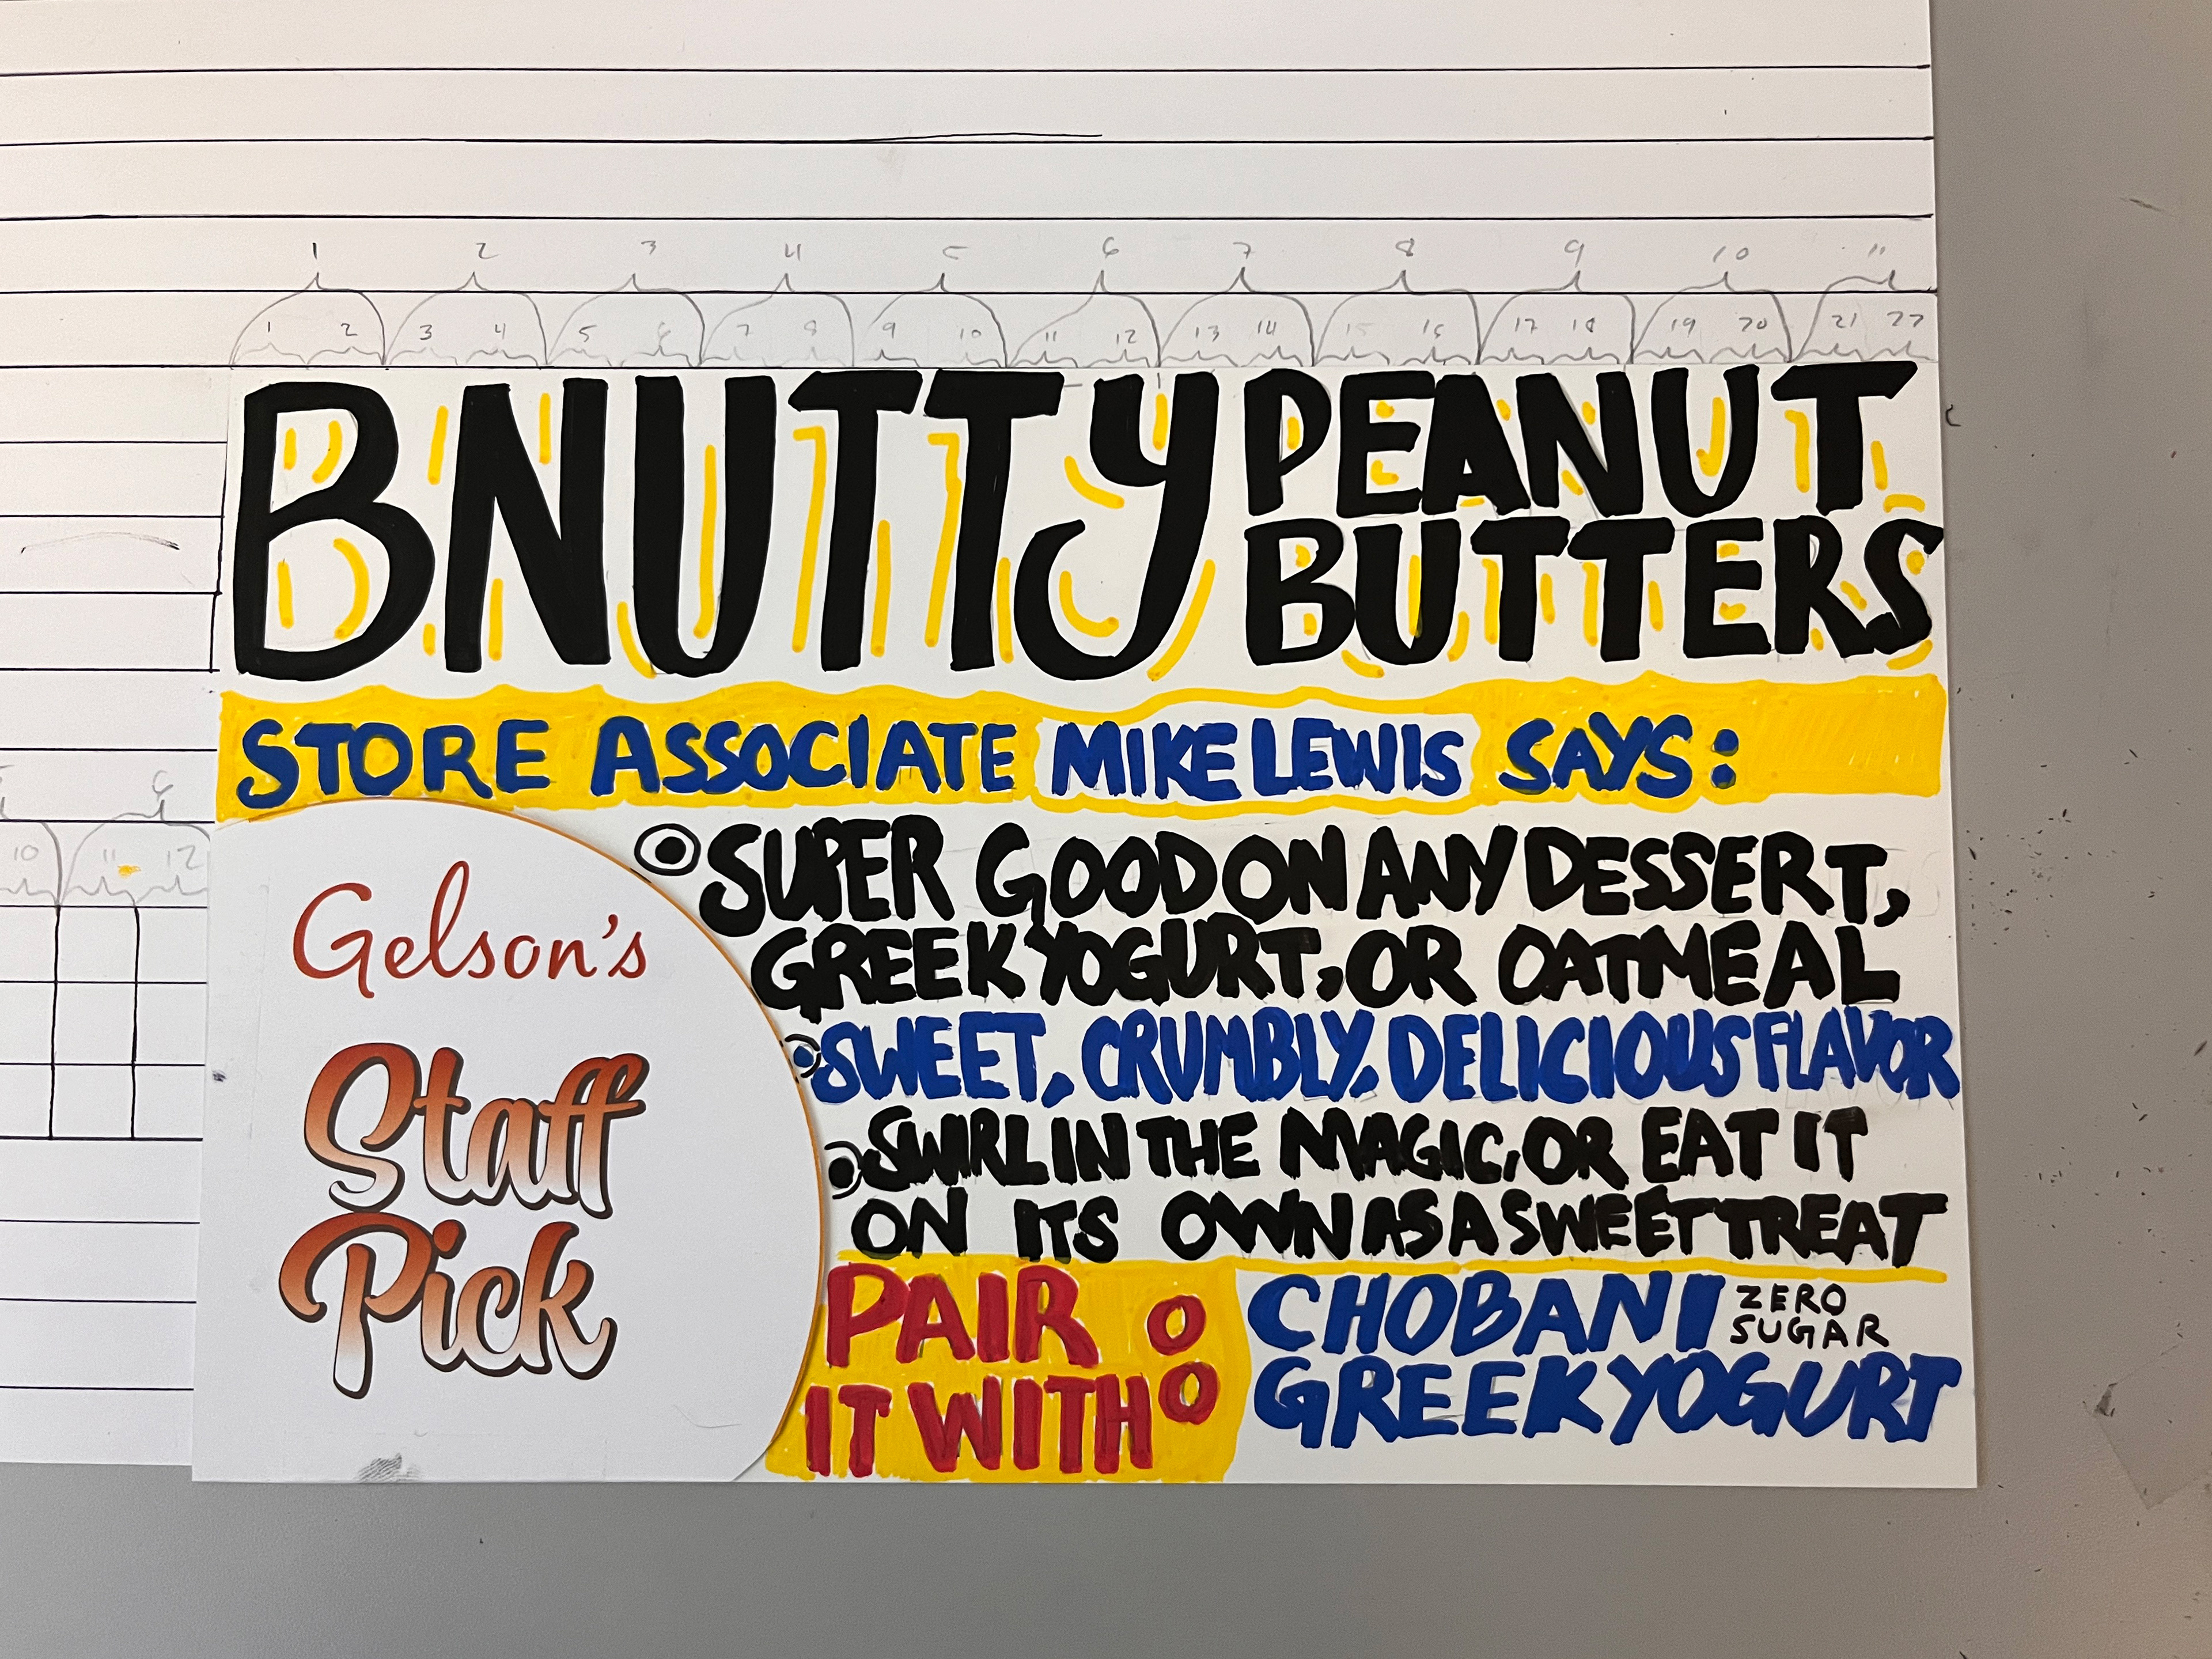 1 2 3 4 5 6 7 8 9 10 11
1 2 3 4 5 6 7 8 9 10 11 12 13 14 15 16 17 18 19 20 21 22
BNUTTY PEANUT
BUTTERS
STORE ASSOCIATE MIKE LEWIS SAYS:
6
10 11 12
Gelson's
Staff
Pick
SUPER GOOD ON ANY DESSERT,
GREEK YOGURT, OR OATMEAL
SWEET, CRUMBLY, DELICIOUS FLAVOR
SWIRL IN THE MAGIC, OR EAT IT
ON ITS OWN AS A SWEET TREAT
PAIR
IT WITH:
CHOBANI ZERO
SUGAR
GREEK YOGURT